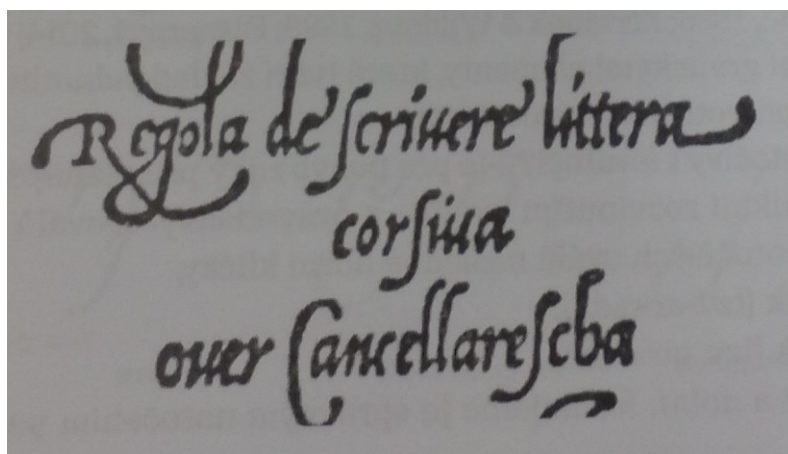 Regola de ſcriuere littera
corſiua
ouer Cancellareſcha